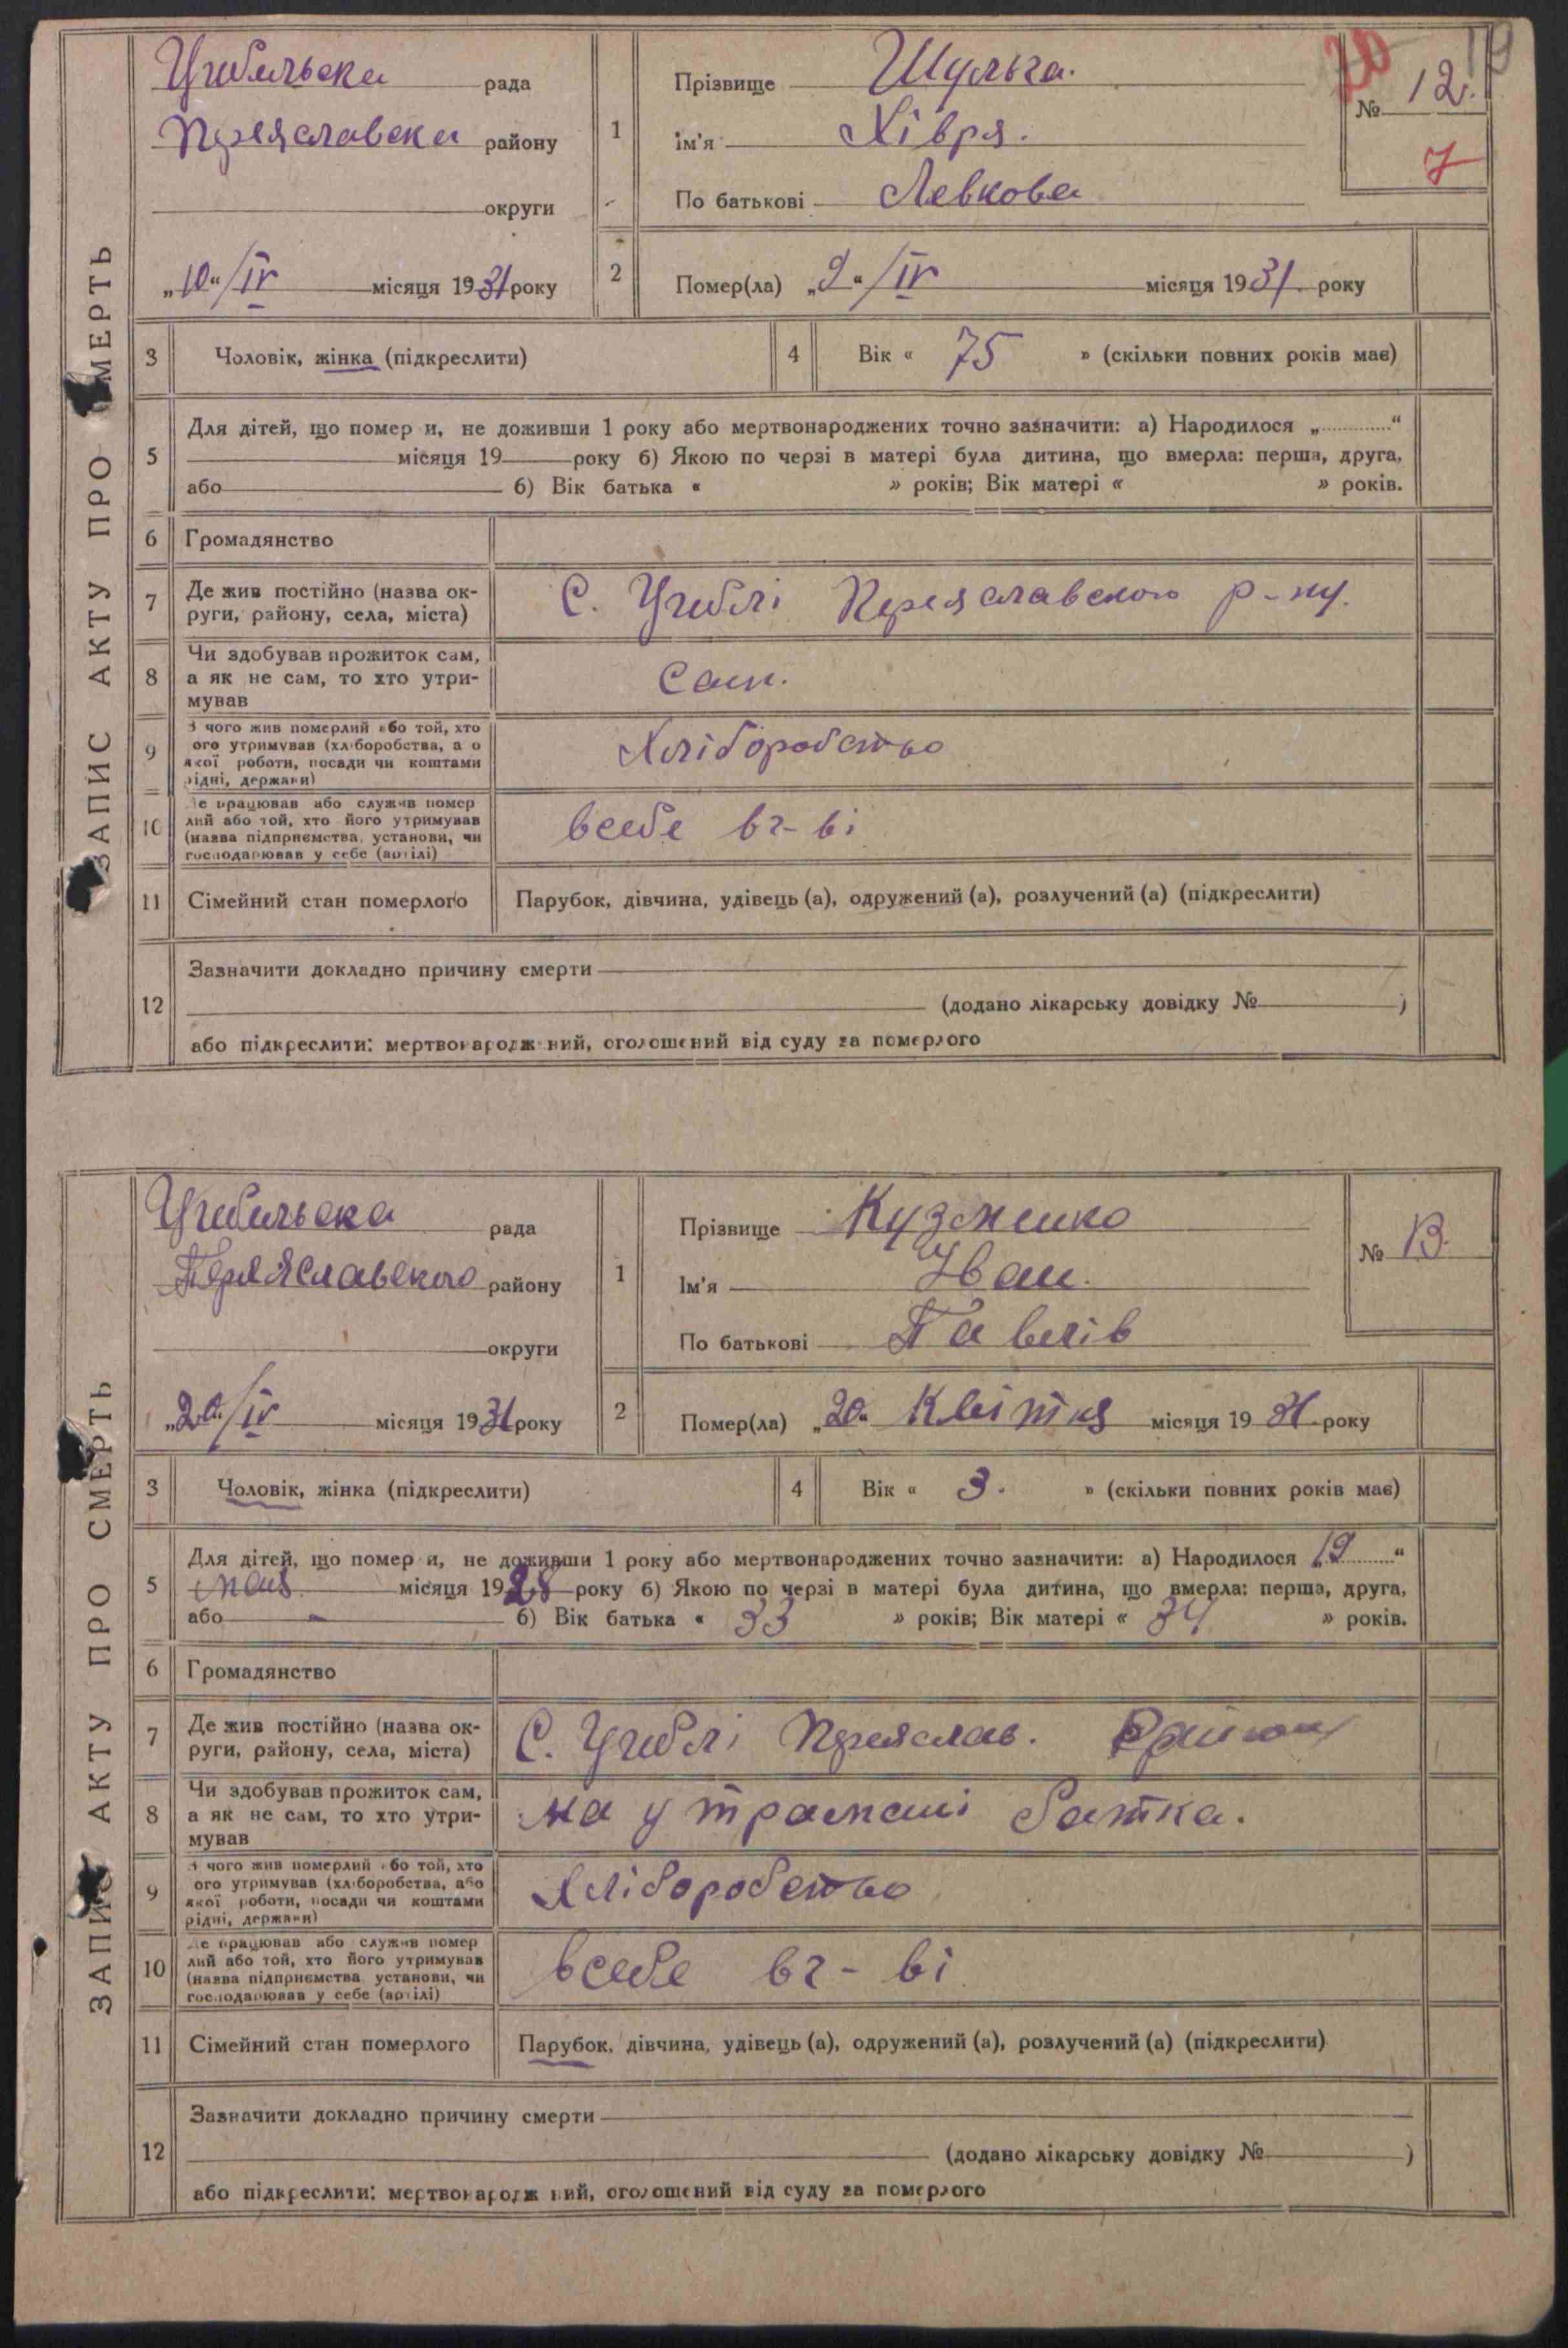 ЗАПИС АКТУ ПРО СМЕРТЬ
Циблильська рада
Переяславськ району
округи
„10“/IV місяця 1931 року
1
Прізвище Шульга.
Ім'я Хівря.
По батькові Левкова
20
19
№ 12.
7
2
Помер(ла) „9“/IV місяця 1931. року
3 Чоловік, жінка (підкреслити)
4 Вік « 75 » (скільки повних років має)
5
Для дітей, що помер и, не доживши 1 року або мертвонароджених точно зазначити: а) Народилося „............“
місяця 19 року б) Якою по черзі в матері була дитина, що вмерла: перша, друга,
або б) Вік батька « » років; Вік матері « » років.
6 Громадянство
7 Де жив постійно (назва ок-
руги, району, села, міста)
С. Циблі Переяславского р-ну.
8 Чи здобував прожиток сам,
а як не сам, то хто утри-
мував
Сам.
9 З чого жив померлий або той, хто
ого утримував (хліборобства, а о
якої роботи, посади чи коштами
рідні, держави)
Хліборобство
10 Де працював або служив помер
лий або той, хто його утримував
(назва підприємства, установи, чи
господарював у себе (артілі)
всебе вг-ві
11 Сімейний стан померлого
Парубок, дівчина, удівець (а), одружений (а), розлучений (а) (підкреслити)
12
Зазначити докладно причину смерти
(додано лікарську довідку № )
або підкреслити: мертвонародж ний, оголошений від суду за померлого
ЗАПИС АКТУ ПРО СМЕРТЬ
Цибильська рада
Переяславского району
округи
„20“/IV місяця 1931 року
1
Прізвище Кузменко
Ім'я Іван.
По батькові Павлів
№ 13.
2
Помер(ла) „20“ Квітня місяця 1931. року
3 Чоловік, жінка (підкреслити)
4 Вік « 3. » (скільки повних років має)
5
Для дітей, що помер и, не доживши 1 року або мертвонароджених точно зазначити: а) Народилося 19............“
мая місяця 1928 року б) Якою по черзі в матері була дитина, що вмерла: перша, друга,
або - б) Вік батька « 33 » років; Вік матері « 34 » років.
6 Громадянство
7 Де жив постійно (назва ок-
руги, району, села, міста)
С. Циблі Переяслав. району
8 Чи здобував прожиток сам,
а як не сам, то хто утри-
мував
на утрамані батка.
9 З чого жив померлий або той, хто
ого утримував (хліборобства, або
якої роботи, посади чи коштами
рідні, держави)
Хліборобство
10 Де працював або служив помер
лий або той, хто його утримував
(назва підприємства, установи, чи
господарював у себе (артілі)
всебе вг-ві
11 Сімейний стан померлого
Парубок, дівчина, удівець (а), одружений (а), розлучений (а) (підкреслити)
12
Зазначити докладно причину смерти
(додано лікарську довідку № )
або підкреслити: мертвонародж ний, оголошений від суду за померлого